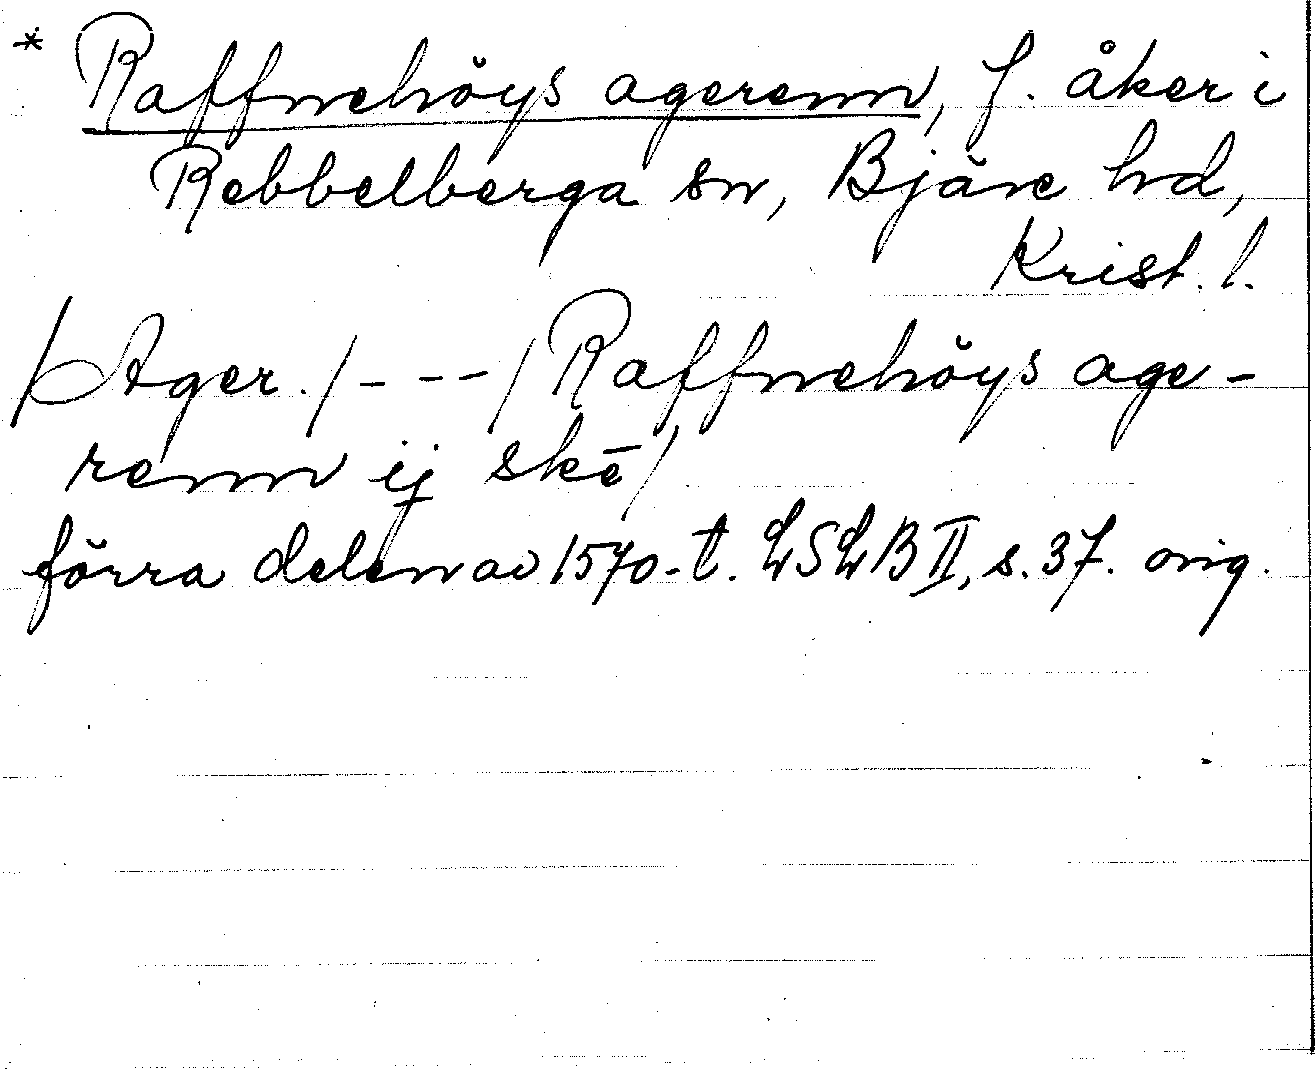 * Raffnehöys agerenn, f. åker i
Rebbelberga sn, Bjäre hd,
Krist. l.
/Ager./ - - - / Raffnehöys age-
renn ij skē/
förra delen av 1570-t. LSLB II, s. 37. orig.